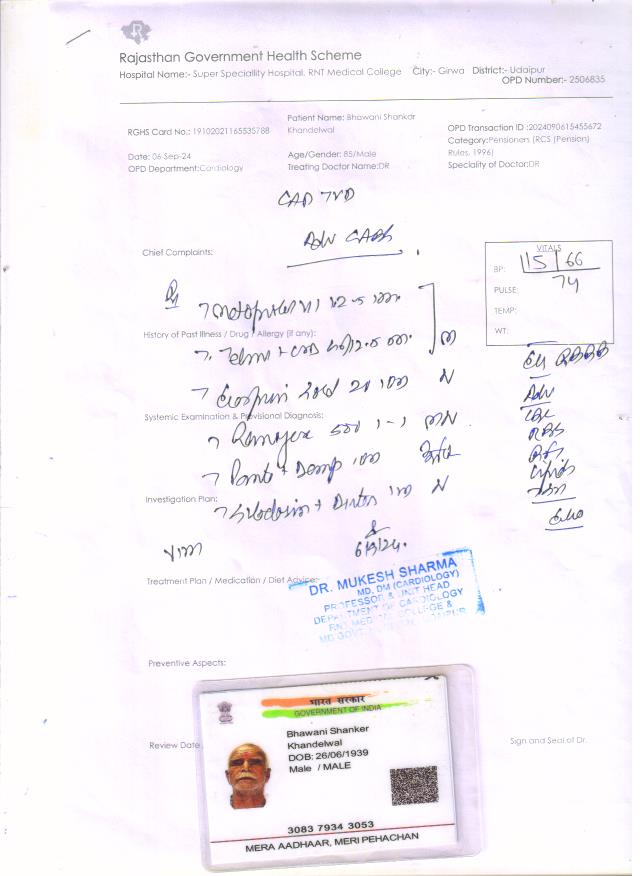 Rajasthan Government Health Scheme
Hospital Name:- Super Speciallity Hospital, RNT Medical College City:- Girwa District:- Udaipur
OPD Number:- 2506835
RGHS Card No.: 19102021165535788
Patient Name: Bhawani Shankar
Khandelwal
OPD Transaction ID :2024090615455672
Category:Pensioners (RCS (Pension)
Rules, 1996)
Date: 06 Sep-24
Age/Gender: 85/Male
Speciality of Doctor:DR
OPD Department:Cardiology
Treating Doctor Name:DR
CAD TVD
Adv CABG
Chief Complaints:
VITALS
BP: 115/66
PULSE: 74
TEMP:
WT:
12.5
History of Past Illness / Drug / Allergy (if any):
Telmi + 40/12.5 M
Gold 20 N
Adv
Systemic Examination & Provisional Diagnosis:
500 1-1 MN
CBC
RBS
Panto + Domp
RFT
Lipids
Investigation Plan:
N
Echo
6/9/24.
Treatment Plan / Medication / Diet Advice:-
DR. MUKESH SHARMA
MD, DM (CARDIOLOGY)
PROFESSOR & UNIT HEAD
DEPARTMENT OF CARDIOLOGY
RNT MEDICAL COLLEGE &
Preventive Aspects:
Review Date
Sign and Seal of Dr.
भारत सरकार
GOVERNMENT OF INDIA
Bhawani Shanker
Khandelwal
DOB: 26/06/1939
Male / MALE
3083 7934 3053
MERA AADHAAR, MERI PEHACHAN